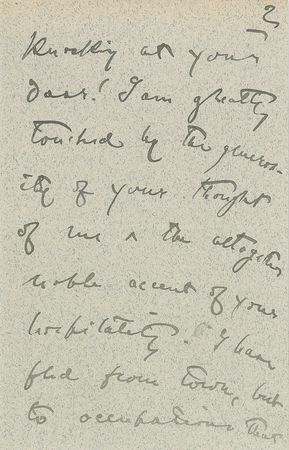 2
knocking at your
door! I am greatly
touched by the generos-
ity of your thought
of me & the altogether
noble accent of your
hospitality. I have
fled from town, but
to occupations that